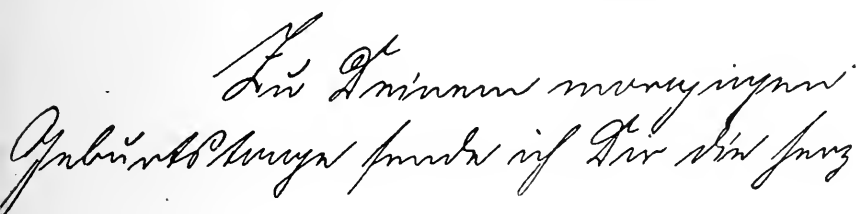 Zu Deinem morgigen
Geburtstage sende ich Dir die herz